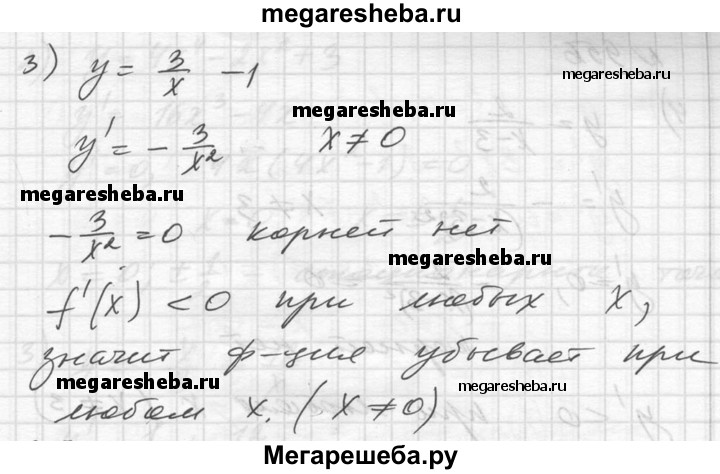 megaresheba.ru
3) y = 3/x - 1
megaresheba.ru
megaresheba.ru
y' = - 3/x² x ≠ 0
megaresheba.ru
- 3/x² = 0 корней нет
megaresheba.ru
f'(x) < 0 при любых x,
значит ф-ция убывает при
megaresheba.ru
megaresheba.ru
любом x. (x ≠ 0)
Мегарешеба.ру